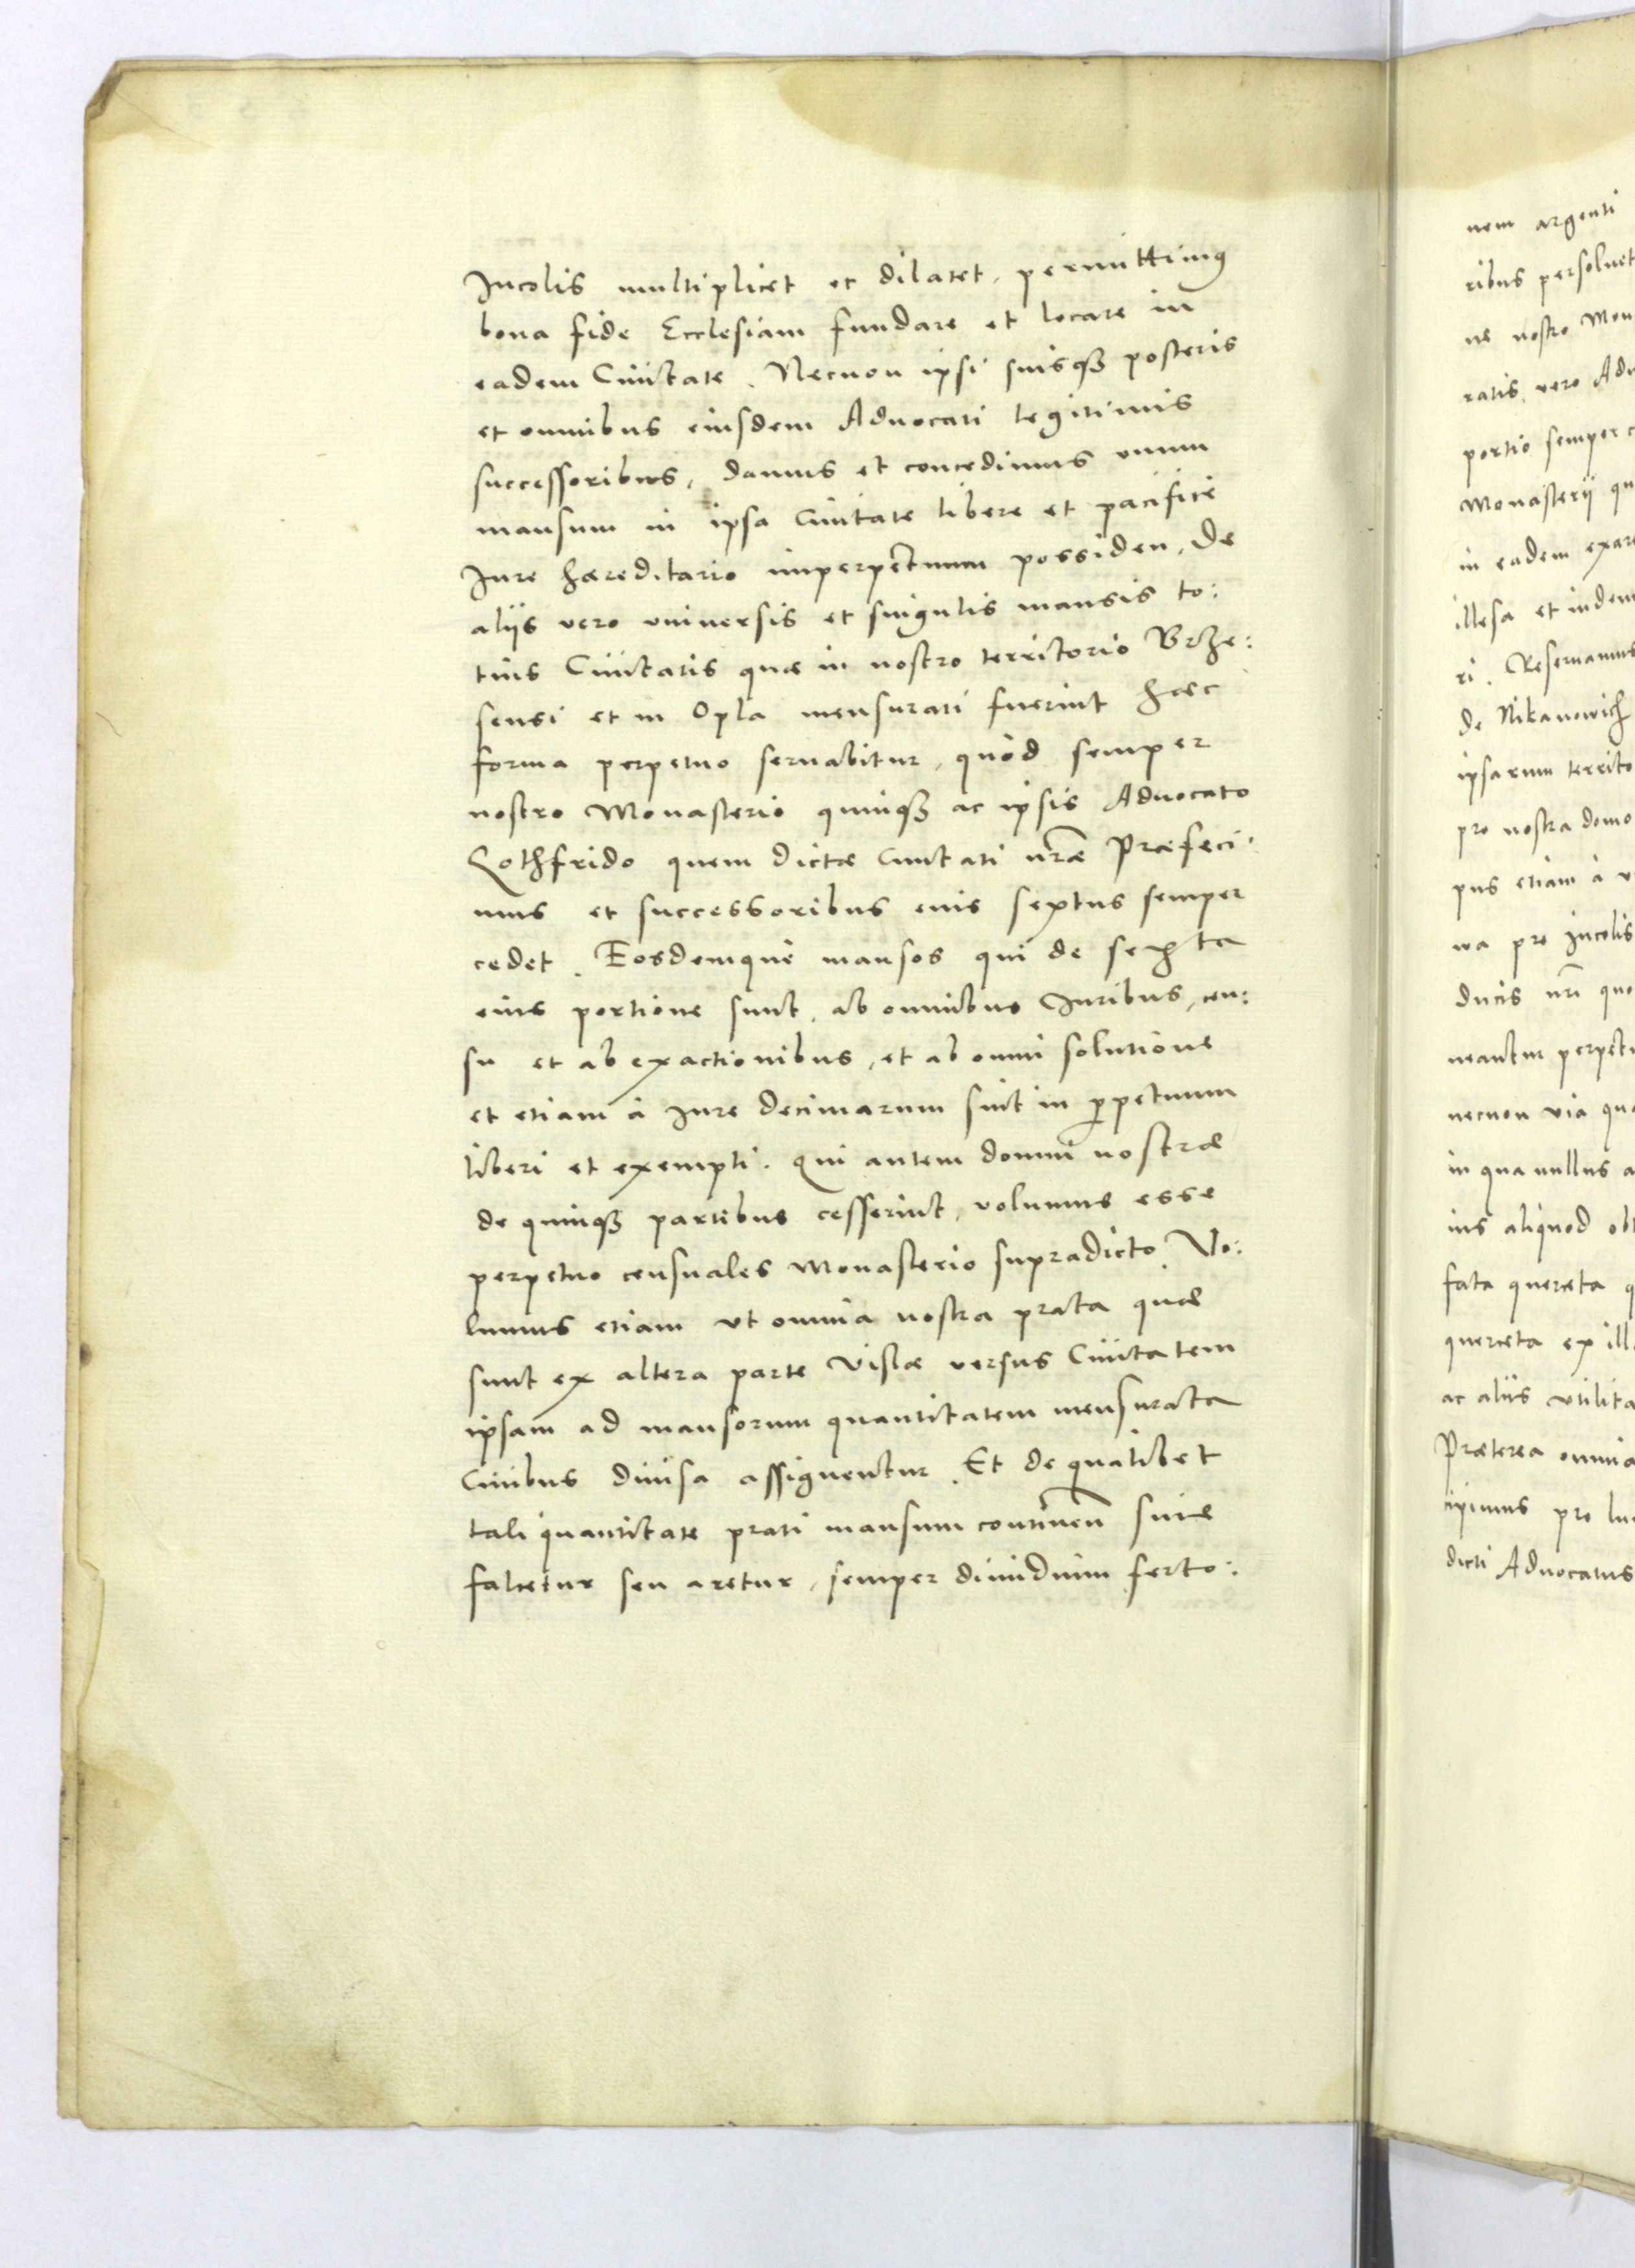 Incolis multiplicet et dilatet, permittimus
bona fide Ecclesiam fundare et locare in
eadem Ciuitate. Necnon ipsi suisq3 posteris
et omnibus eiusdem Aduocati legitimis
successoribus, damus et concedimus unum
mansum in ipsa Ciuitate libere et pacifice
Jure hæreditario imperpetuum possiden, De
alijs vero vniuersis et singulis mansis to:
tius Ciuitatis quæ in nostro territorio Brze:
sensi et in Opla mensurati fuerint hæc
forma perpetuo seruabitur, quod semper
nostro Monasterio quinq3 ac ipsis Aduocato
Lothfrido quem dictæ Ciuitati nræ Præfeci:
mus et successoribus eius sextus semper
cedet. Eosdemque mansos qui de sexta
eius portione sunt, ab omnibus Iuribus, cen:
su et ab exactionibus, et ab omni solutione
et etiam à Iure decimarum sint in ppetuum
liberi et exempti. Qui autem domui nostræ
de quinq3 partibus cesserint, volumus esse
perpetuo censuales Monasterio supradicto. Vo:
lumus etiam vt omnia nostra prata quæ
sunt ex altera parte Vislæ versus Ciuitatem
ipsam ad mansorum quantitatem mensurata
Ciuibus diuisa assignentur. Et de qualibet
tali quantitate prati mansum continen siue
falcetur seu aretur, semper dimidium ferto:
nem argenti
ribus persoluet
ne nostro Mon
ratis, vero Adu
portio semper c
Monasterij qu
in eadem exare
illesa et indem
ri. Reseruamus
de Nikanowich
ipsarum territo
pro nostra domo
pus etiam à v
wa pro Incolis
ducis nri quo
neantur perpetu
necnon via qua
in qua nullus a
ius aliquod obt
fata querceta q
querceta ex ill
ac alijs vtilita
Præterea omnia
cipimus pro lu
dicti Aduocatus